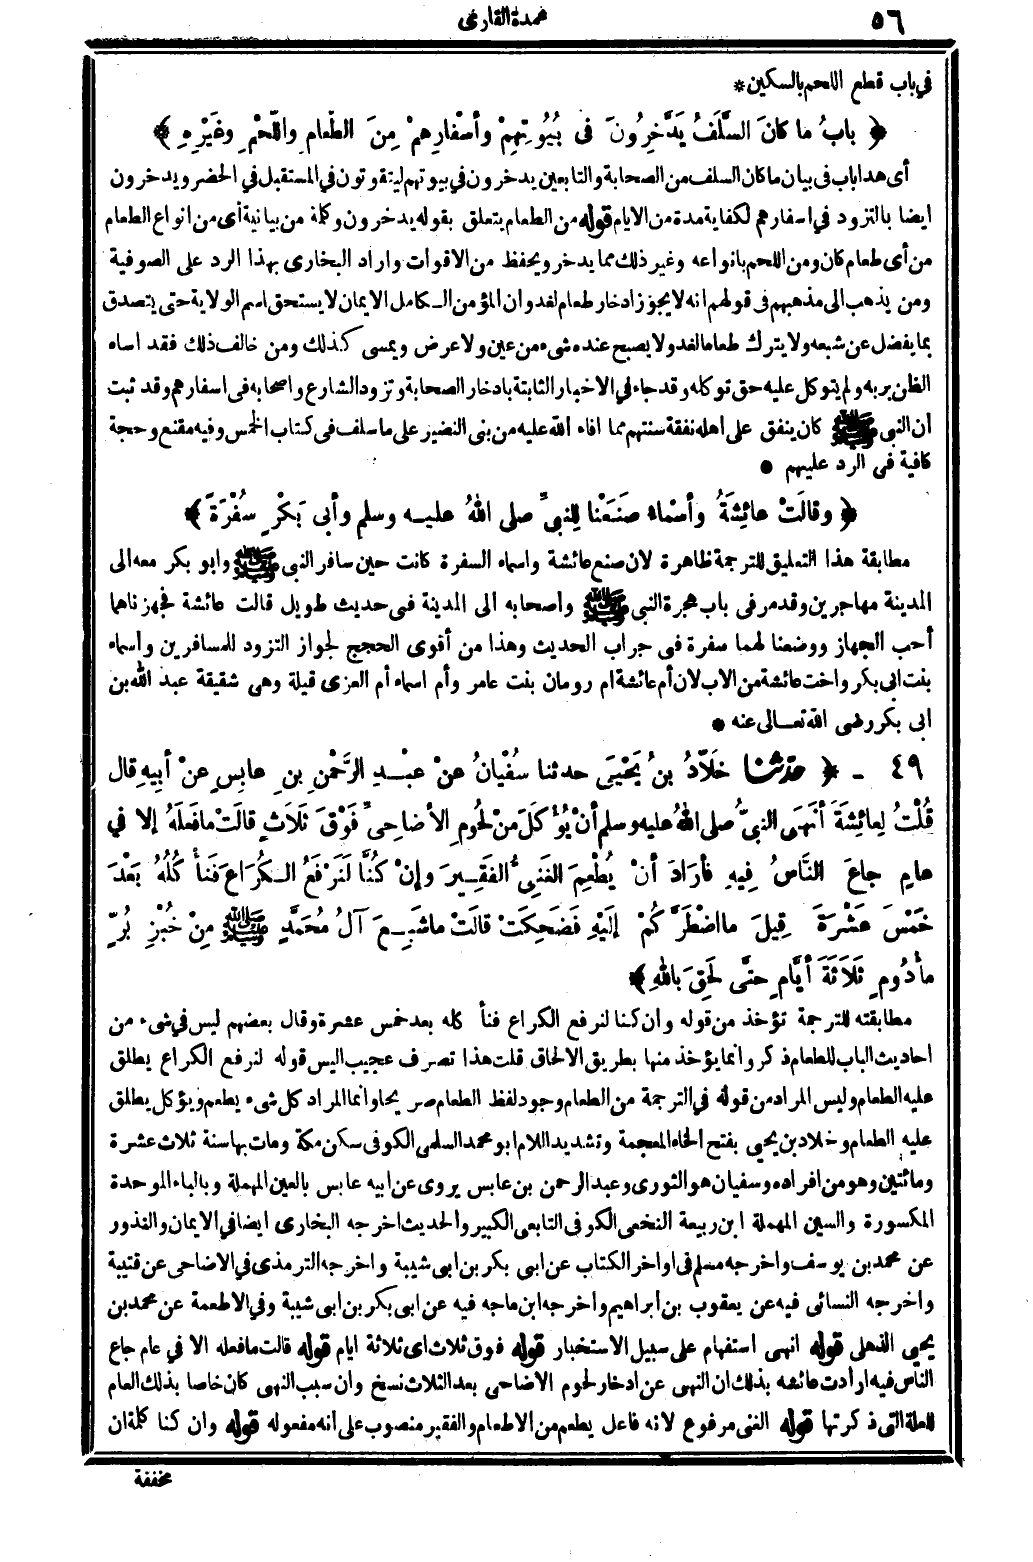 ٥٦
عمدة القارئ
في باب قطع اللحم بالسكين *
﴿ بابُ ما كانَ السَّلَفُ يَدَّخِرُونَ فى بُيُوتِهِمْ وأسْفارِهِمْ مِنَ الطَّعامِ واللَّحْمِ وغَيْرِهِ ﴾
أى هذا باب فى بيان ما كان السلف من الصحابة والتابعين يدخرون في بيوتهم ليتقوتون في المستقبل في الحضر ويدخرون
ايضا بالتزود في اسفارهم لكفاية مدة من الايام قوله من الطعام يتعلق بقوله يدخرون وكلمة من بيانية أى من انواع الطعام
من أى طعام كان ومن اللحم بانواعه وغير ذلك مما يدخر ويحفظ من الاقوات واراد البخارى بهذا الرد على الصوفية
ومن يذهب الى مذهبهم فى قولهم انه لا يجوز ادخار طعام لغد وان المؤمن الكامل الايمان لا يستحق اسم الولاية حتى يتصدق
بما يفضل عن شبعه ولا يترك طعاما لغد ولا يصبح عنده شىء من عين ولا عرض ويمسى كذلك ومن خالف ذلك فقد اساء
الظن بربه ولم يتوكل عليه حق توكله وقد جاء في الاخبار الثابتة بادخار الصحابة وتزود الشارع واصحابه فى اسفارهم وقد ثبت
أن النبى ﷺ كان ينفق على اهله نفقة سنتهم مما افاء الله عليه من بنى النضير على ما سلف فى كتاب الخمس وفيه مقنع وحجة
كافية فى الرد عليهم ●
﴿ وقالَتْ عائِشَةُ وأسْماءُ صَنَعْنا لِلنبىِّ صلى اللهُ عليه وسلم وأبى بَكْرٍ سُفْرَةً ﴾
مطابقة هذا التعليق للترجمة ظاهرة لان صنع عائشة واسماء السفرة كانت حين سافر النبى ﷺ وابو بكر معه الى
المدينة مهاجرين وقد مر فى باب هجرة النبى ﷺ وأصحابه الى المدينة فى حديث طويل قالت عائشة فجهزناهما
أحب الجهاز ووضعنا لهما سفرة فى جراب الحديث وهذا من أقوى الحجج لجواز التزود للمسافرين وأسماء
بنت ابى بكر واخت عائشة من الاب لان أم عائشة ام رومان بنت عامر وأم اسماء أم العزى قيلة وهى شقيقة عبد الله بن
ابى بكر رضى الله تعالى عنه ●
٤٩ - ﴿ حدّثنا خَلاَّدُ بنُ يَحْيَى حدثنا سُفْيانُ عنْ عبْدِ الرَّحْمنِ بنِ عابِسٍ عنْ أبِيهِ قال
قُلْتُ لِعائِشَةَ أنَهَى النبيُّ صلى اللهُ عليه وسلم أنْ يُؤْكَلَ مِنْ لُحُومِ الأضاحِى فَوْقَ ثَلاثٍ قالَتْ ما فَعَلَهُ إلا في
عامٍ جاعَ النَّاسُ فِيهِ فأرَادَ أنْ يُطْعِمَ الغَنِىُّ الفَقِيرَ وإنْ كُنَّا لَنَرْفَعُ الكُرَاعَ فَنأْ كُلُهُ بَعْدَ
خَمْسَ عَشْرَةَ قِيلَ ما اضْطَرَّكُمْ إلَيْهِ فَضَحِكَتْ قالَتْ ما شَبِعَ آلُ مُحَمَّدٍ ﷺ مِنْ خُبْزِ بُرٍّ
مأدُومٍ ثَلاَثَةَ أيَّامٍ حتَّى لَحِقَ بالله ﴾
مطابقته للترجمة تؤخذ من قوله وان كنا لنرفع الكراع فنأ كله بعد خمس عشرة وقال بعضهم ليس في شىء من
احاديث الباب للطعام ذكر وانما يؤخذ منها بطريق الالحاق قلت هذا تصرف عجيب اليس قوله لنرفع الكراع يطلق
عليه الطعام وليس المراد من قوله في الترجمة من الطعام وجود لفظ الطعام صريحا وانما المراد كل شىء يطعم ويؤكل يطلق
عليه الطعام وخلاد بن يحيى بفتح الخاء المعجمة وتشديد اللام ابو محمد السلمى الكوفى سكن مكة ومات بها سنة ثلاث عشرة
ومائتين وهو من افراده وسفيان هو الثورى وعبد الرحمن بن عابس يروى عن ابيه عابس بالعين المهملة وبالباء الموحدة
المكسورة والسين المهملة ابن ربيعة النخعى الكوفى التابعى الكبير والحديث اخرجه البخارى ايضا في الايمان والنذور
عن محمد بن يوسف واخرجه مسلم فى اواخر الكتاب عن ابى بكر بن ابى شيبة واخرجه الترمذى في الاضاحى عن قتيبة
واخرجه النسائى فيه عن يعقوب بن ابراهيم واخرجه ابن ماجه فيه عن ابى بكر بن ابى شيبة وفي الاطعمة عن محمد بن
يحيى الذهلى قوله انهى استفهام على سبيل الاستخبار قوله فوق ثلاث اى ثلاثة ايام قوله قالت ما فعله الا في عام جاع
الناس فيه ارادت عائشه بذلك ان النهى عن ادخار لحوم الاضاحى بعد الثلاث نسخ وان سبب النهى كان خاصا بذلك العام
للعلة التى ذكرتها قوله الغنى مرفوع لانه فاعل يطعم من الاطعام والفقير منصوب على انه مفعوله قوله وان كنا كلمة ان
مخففة